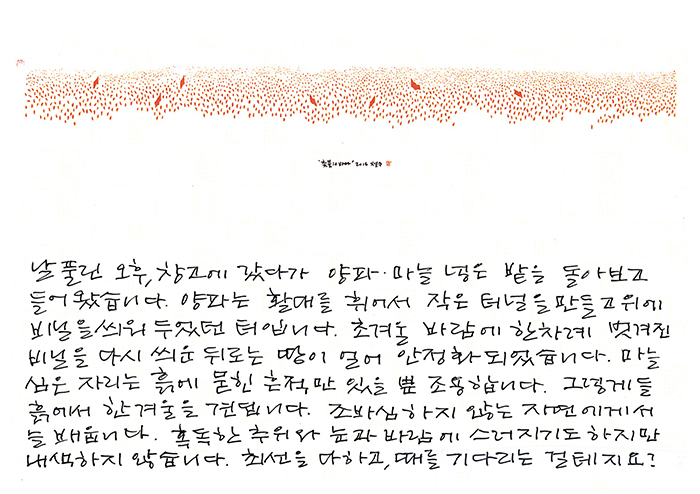 '촛불의 바다' 2016 이철수
날 풀린 오후, 창고에 갔다가 양파·마늘 넣은 밭을 돌아보고
들어왔습니다. 양파는 활대를 휘어서 작은 터널을 만들고 위에
비닐을 씌워 두었던 터입니다. 초겨울 바람에 한차례 벗겨진
비닐을 다시 씌운 뒤로는 땅이 얼어 안정화되었습니다. 마늘
심은 자리는 흙에 묻힌 흔적만 있을 뿐 조용합니다. 그렇게들
흙에서 한겨울을 견딥니다. 조바심하지 않는 자연에게서
늘 배웁니다. 혹독한 추위와 눈과 바람에 스러지기도 하지만
내색하지 않습니다. 최선을 다하고, 때를 기다리는 걸테지요?